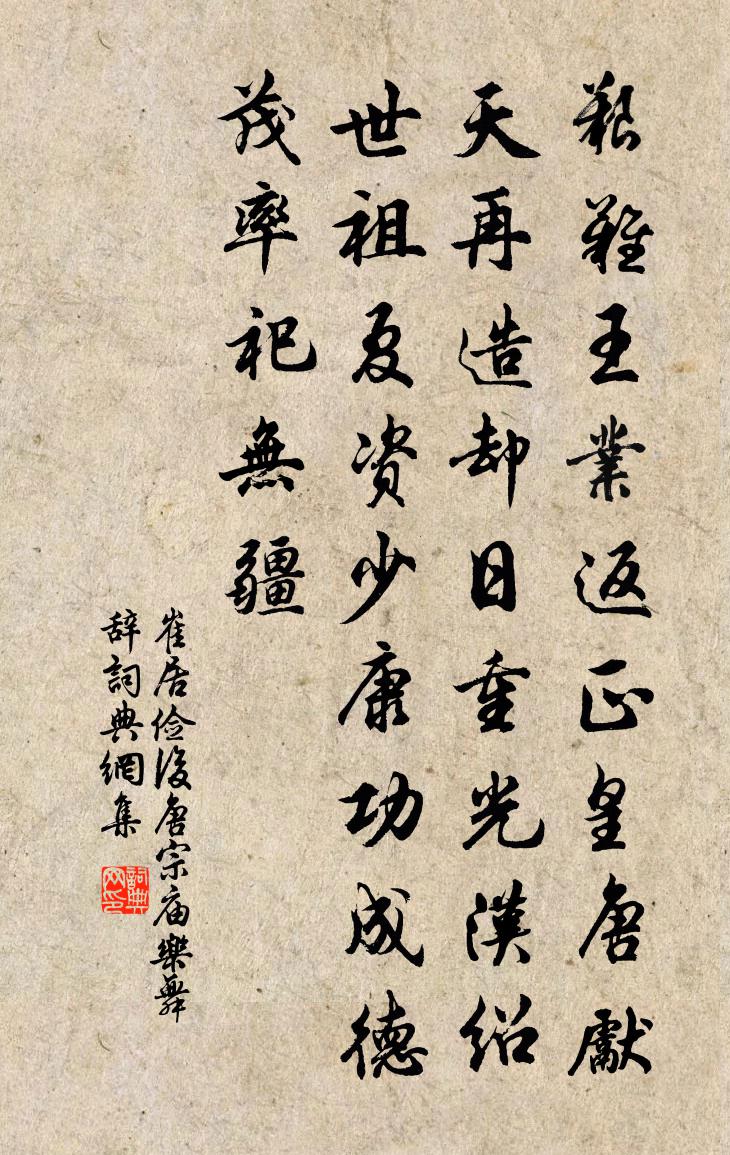 艱難王業返正皇唐獻
天再造却日重光漢紹
世祖夏资少康功成德
茂率祀無疆
崔居俭後唐宗庙樂舞
辞詞典網集
詞典网印